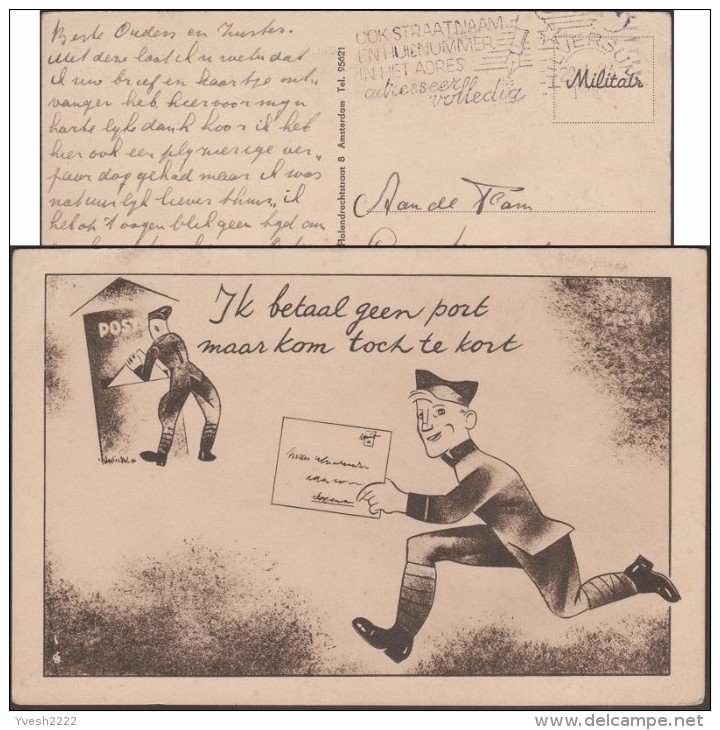 Beste Ouders en Zuster.
Met deze laat ik u weten dat
ik uw brief en kaartje ont-
vangen heb. hiervoor mijn
hartelijke dank hoor ik heb
hier ook een plezierige ver-
jaardag gehad maar ik was
natuurlijk liever thuis, ik
heb op 't oogenblik geen tijd om
Holendrechtstraat 8 Amsterdam Tel. 95621
OOK STRAATNAAM
EN HUISNUMMER
IN HET ADRES
adresseer
volledig
Militair
Aan de Fam
POST
Ik betaal geen port
maar kom toch te kort
Yvesh2222
delcampe.net